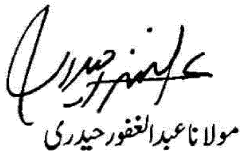 مولانا عبدالغفور حیدری